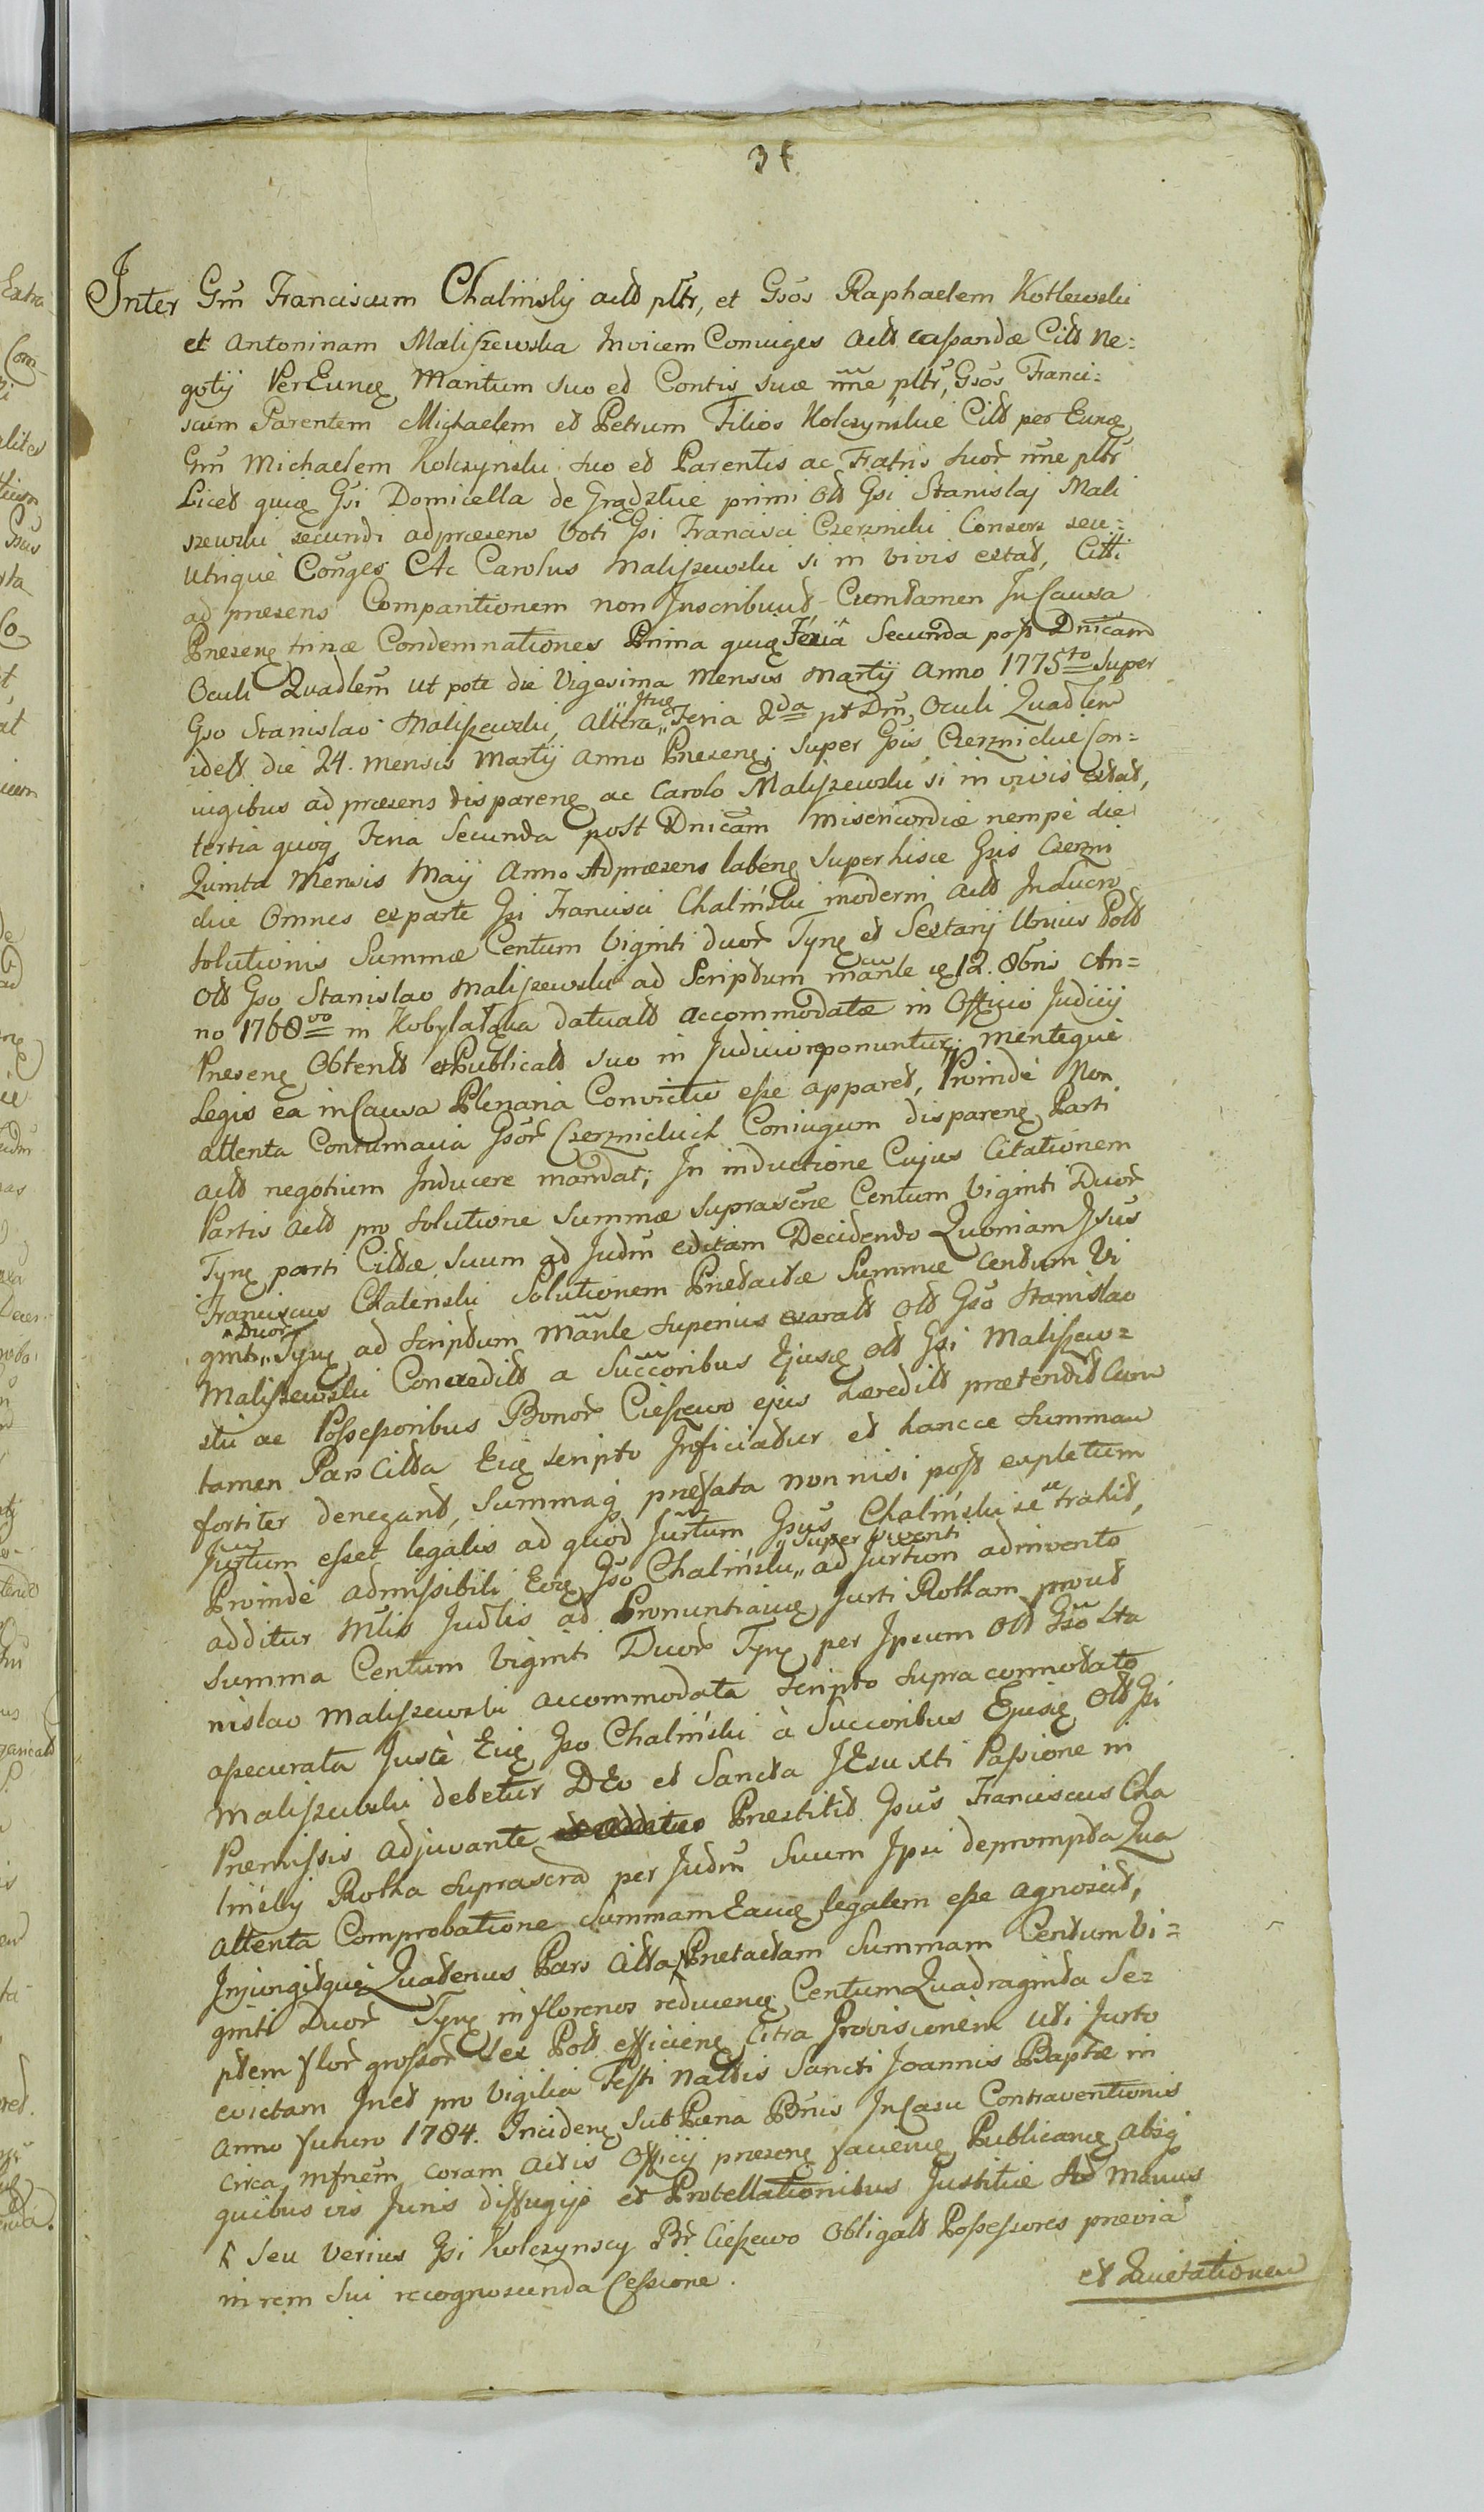 37
Inter Gm̃ Franciscum Chalinsky actt pltr, et Gsõs Raphaelem Kotlewski
et Antoninam Maliszewska Invicem Coniuges actt cassandæ Citt ne=
gotij Per Eunq Maritum suo et Contis suæ nñe pltr, Gsos Franci=
scum Parentem Michaelem et Petrum Filios Kolczynskie Citt per Eunq
Gm̃ Michaelem Kolczynski suo et Parentis ac Fratris suor nñe pltr
Licet quiq Gsi Domicella de Grądzkie primi olt Gsi Stanislaj Mali
szewski secundi ad præsens Voti Gsi Francisci Czerznicki Consors seu=
Utrique Conges Ac Carolus Maliszewski si in vivis extat, Citti
ad præsens Comparitionem non Inscribunt Cumtamen In Causa
Præsenq trinæ Condemnationes Prima quiq Feria Secunda post Dnicam
Oculi Quadlem ut pote die Vigesima Mensis Martij Anno 1775to Super
Gso Stanislao Maliszewski, altera Itaq Feria 2da pt Dm̃ Oculi Quadlem
idest die 24. Mensis Martij Anno Præsenq; Super Gsis Czerznickie Con=
iugibus ad præsens disparenq ac Carolo Maliszewski si in vivis extat,
tertia quoq Feria Secunda post Dnicam Misericordiæ nempe die
Quinta Mensis Maij Anno Ad præsens labenq Super hisce Gsis Czerzni
ckie Omnes ex parte Gsi Francisci Chaliński moderni actt In lucro
solutionis Summæ Centum Viginti duor Tynq et Sextarij Unius Polt
olt Gso Stanislao Maliszewski ad Scriptum manle q 12. 8bris An=
no 1768vo in Kobylałąka datuatt accommodatæ in Officio Judicij
Præsenq Obtentt et Publicatt suo in Judicio reponuntur; menteque
Legis ea in Causa Plenaria Convictio esse apparet, Proinde Non
attenta Contumacia Gsor Czerznickich Coniugum disparenq Parti
actt negotium Inducere mandat; In inductione Cujus Citationem
Partis actt pro solutione Summæ suprascræ Centum Viginti Duor
Tynq parti Cittæ suum ad Judm̃ editam Decidendo Quoniam Gsus
Franciscus Chalenski Solutionem Prætactæ Summæ Centum Vi
ginti Duor Tynq ad Scriptum Manle superius exaratt Olt Gso Stanislao
Maliszewski Concreditt a Succoribus Ejusq olt Gsi Maliszew=
ski ac Possessoribus Bonor Cieszewo ejus hæreditt prætendit Cum
tamen Pars Citta Eiq scripto Inficiatur et hancce summam
fortiter denegant, Summaq præfata non nisi post expletum
Jurtum esset legalis ad quod Jurtum Gsus Chaliński se trahit,
Proinde admissibili Eoq Gso Chaliński super viventi ad Jurtum adinvento
additur Mlis Judlis ad Pronuntianq Jurti Rotham prout
Summa Centum Viginti Duor Tynq per Ipsum Olt Gso Sta
nislao Maliszewski accommodata scripto supra connotato
assecurata Juste Eiq Gso Chaliński à Succoribus Ejusq Olt Gsi
Maliszewski debetur DEo et Sancta JEsu Xti Passione in
Præmissis adjuvante Præstitit Gsus Franciscus Cha
linsky Rotha suprascra per Judm̃ Suum Ipsi deprompta Qua
attenta Comprobatione Summam Eanq legalem esse agnoscit,
Injungitque Quatenus Pars Citta Prætactam Summam Centum Vi=
ginti Duor Tynq in florenos reducenq Centum Quadraginta Se=
ptem flor grossor Sex Polt efficienq Citra Provisionem uti Jurto
evictam Inet pro Vigilia Festi Natlis Sancti Joannis Baptæ in
Anno futuro 1784. Incidenq Sub Pœna Bnis In Casu Contraventionis
circa mfnem coram actis Officij præsenq facienq Publicanq absq
quibus vis Juris diffugijs et Protellationibus Justitiæ Ad manus
seu verius Gsi Kolczynscy Br Cieszewo Obligatt Possessores prævia
in rem sui recognoscenda Cessione.
et Quietationem